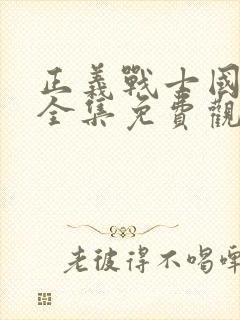 正義戰士國
全集免費觀
老彼得不喝啤